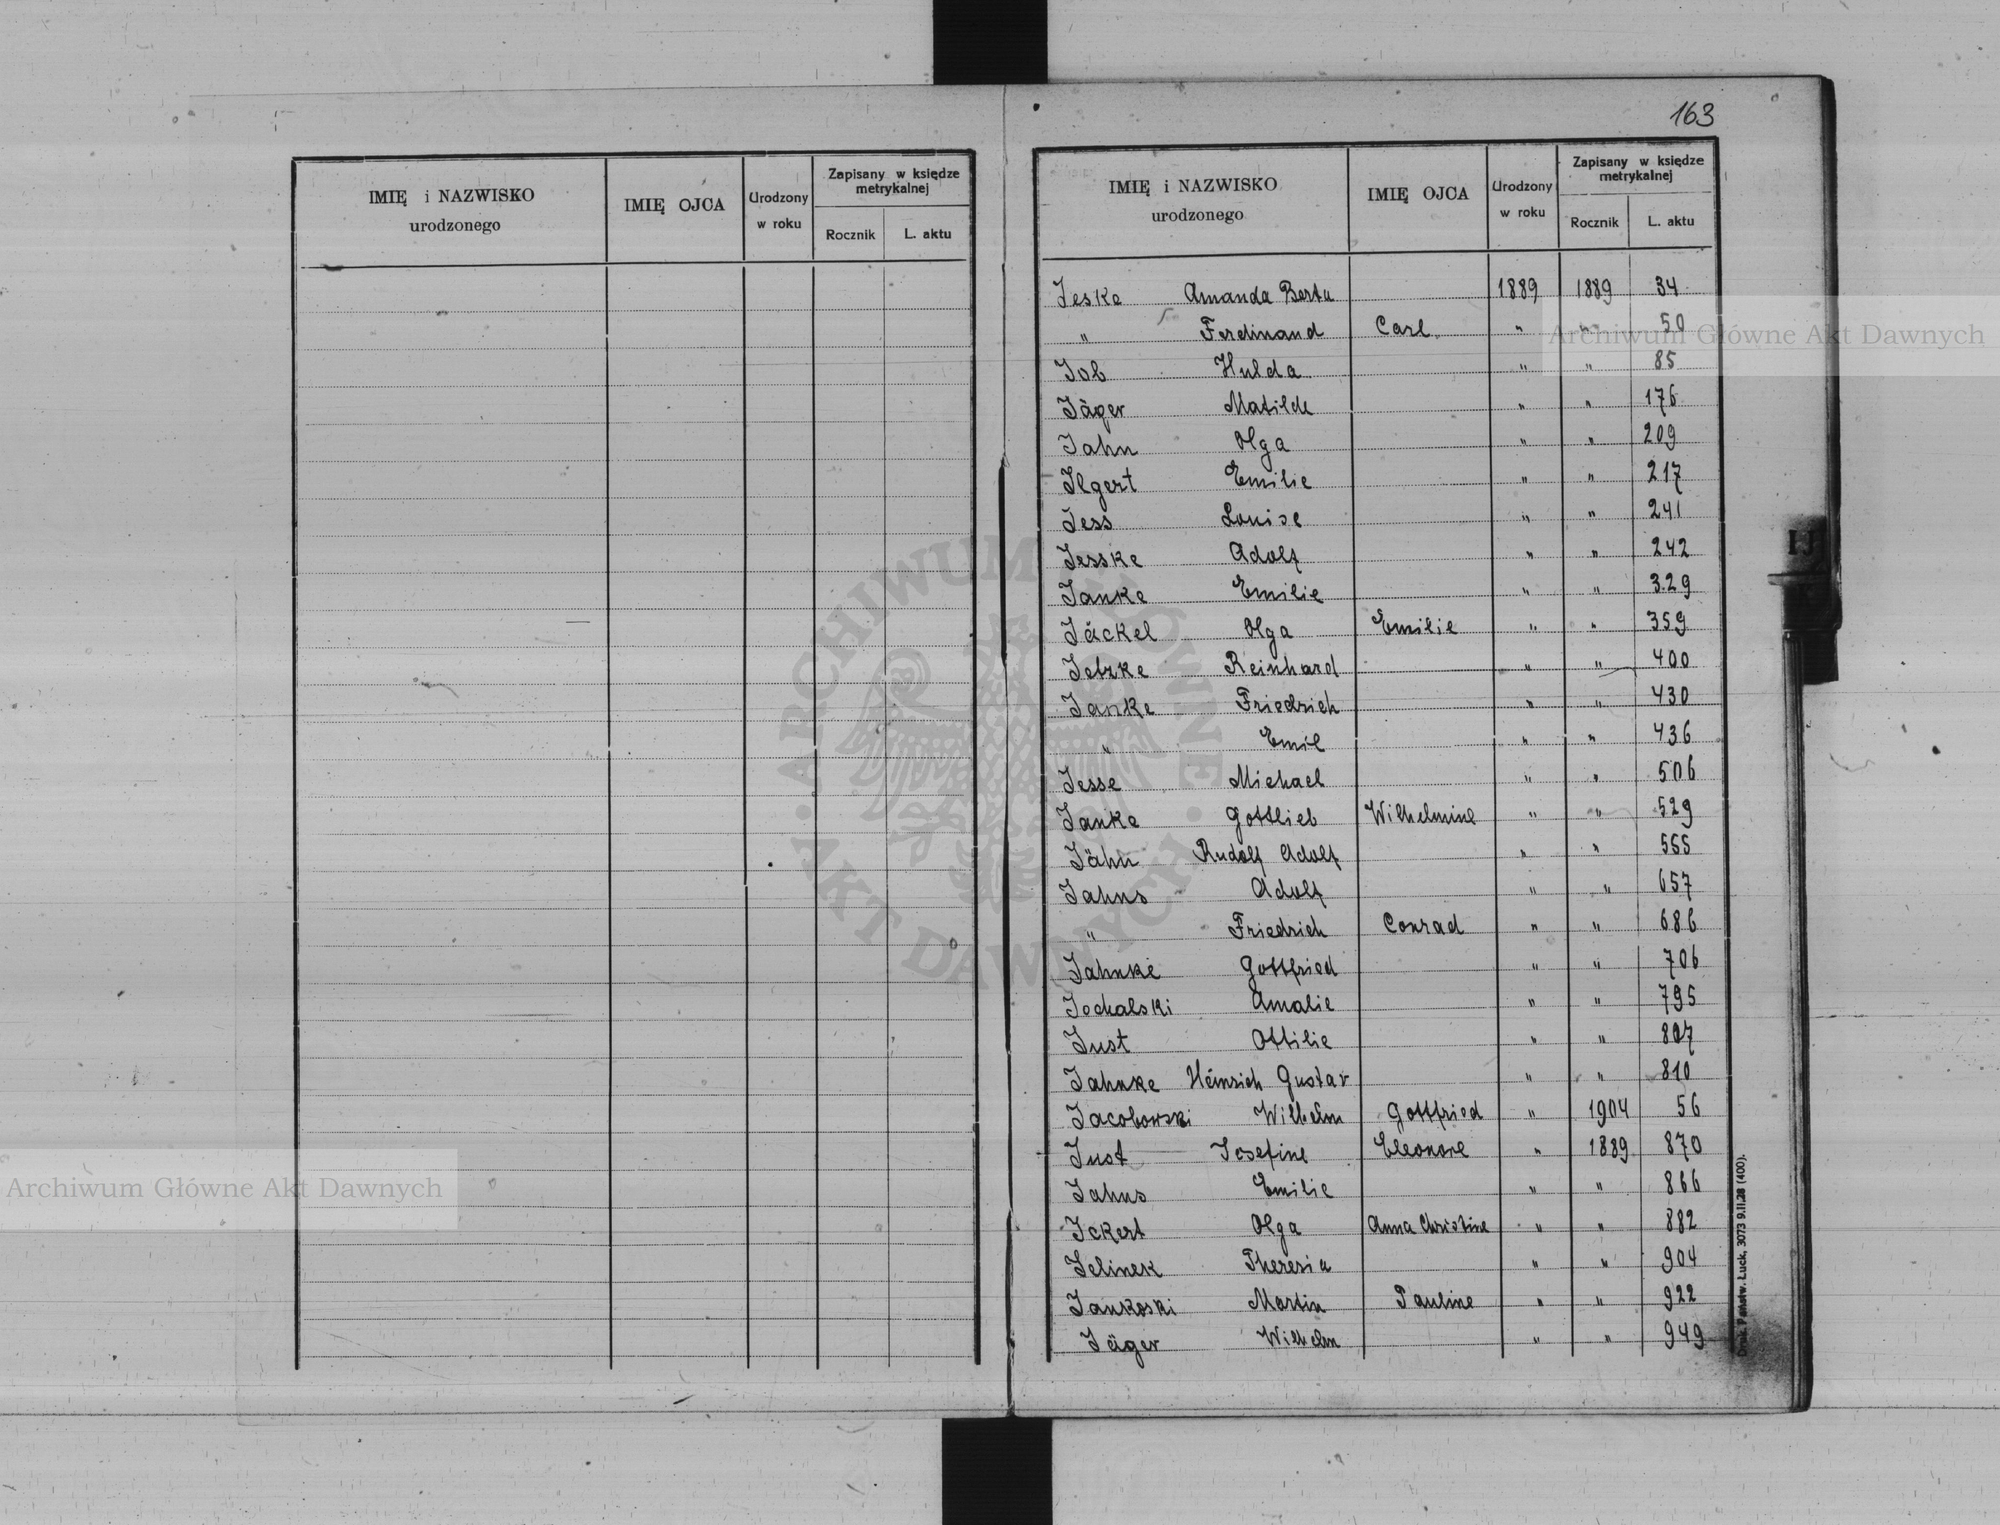 163
IMIĘ i NAZWISKO urodzonego IMIĘ OJCA Urodzony w roku Zapisany w księdze metrykalnej Rocznik L. aktu
IMIĘ i NAZWISKO urodzonego IMIĘ OJCA Urodzony w roku Zapisany w księdze metrykalnej Rocznik L. aktu
Jeske Amanda Berta 1889 1889 34
" Ferdinand Carl " " 50
Job Hulda " " 85
Jäger Matilde " " 176
Jahn Olga " " 209
Ilgert Emilie " " 217
Jess Louise " " 241
Jesske Adolf " " 242
Janke Emilie " " 329
Jäckel Olga Emilie " " 359
Jetzke Reinhard " " 400
Janke Friedrich " " 430
" Emil " " 436
Jesse Michael " " 506
Janke Gottlieb Wilhelmine " " 529
Jähn Rudolf Adolf " " 555
Jahns Adolf " " 657
" Friedrich Conrad " " 686
Jahnke Gottfried " " 706
Jochalski Amalie " " 795
Just Ottilie " " 807
Jahnke Heinrich Gustav " " 810
Jacobowski Wilhelm Gottfried " 1904 56
Just Josefine Eleonore " 1889 870
Jahns Emilie " " 866
Ickert Olga Anna Christine " " 882
Jelinek Theresia " " 904
Jankoski Martin Pauline " " 922
Jäger Wilhelm " " 949
Druk. Państw. Łuck, 3073 9.II.28 (400).
IJ
Archiwum Główne Akt Dawnych
Archiwum Główne Akt Dawnych
ARCHIWUM GŁÓWNE AKT DAWNYCH